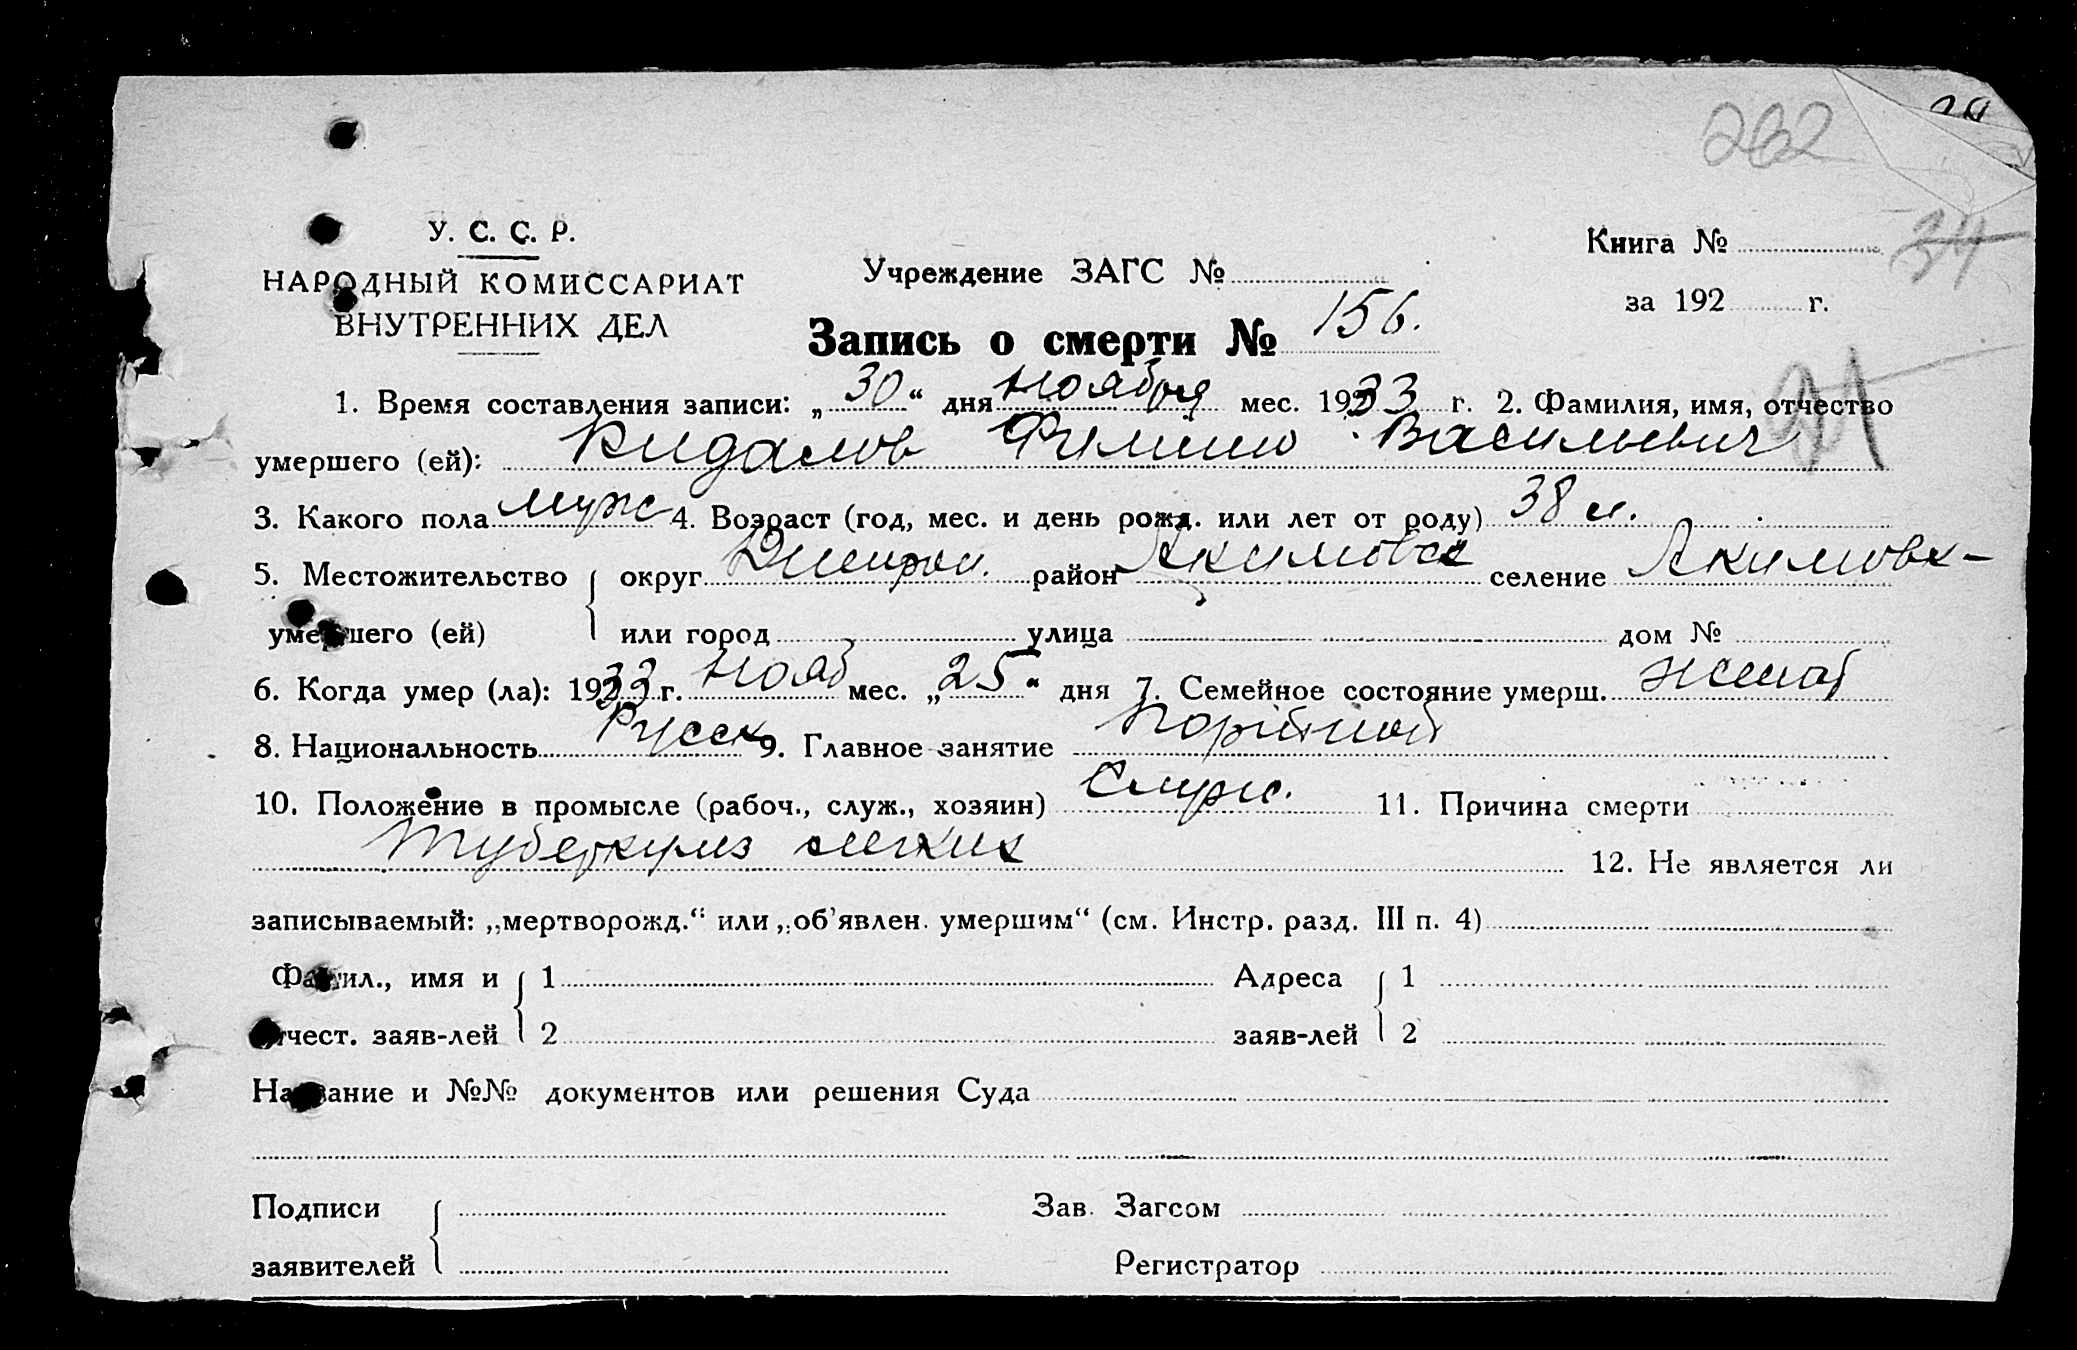 282
34
У. С. С. Р.
НАРОДНЫЙ КОМИССАРИАТ
ВНУТРЕННИХ ДЕЛ
Учреждение ЗАГС №
Книга №
за 192 г.
Запись о смерти № 156.
1. Время составления записи: „30“ дня ноября мес. 1933 г. 2. Фамилия, имя, отчество
умершего (ей): Кидалов Филипп Васильевич
21
3. Какого пола муж 4. Возраст (год, мес. и день рожд. или лет от роду) 38 л.
5. Местожительство округ Днепроп. район Акимовск селение Акимовк-
умершего (ей) или город улица дом №
6. Когда умер (ла): 1933 г. нояб мес. „25“ дня 7. Семейное состояние умерш. женат
8. Национальность Русск 9. Главное занятие портной
10. Положение в промысле (рабоч., служ., хозяин) Служ. 11. Причина смерти
туберкулез легких 12. Не является ли
записываемый: „мертворожд.“ или „об’явлен. умершим“ (см. Инстр. разд. III п. 4)
Фамил., имя и 1 Адреса 1
отчест. заяв-лей 2 заяв-лей 2
Название и №№ документов или решения Суда
Подписи Зав. Загсом
заявителей Регистратор